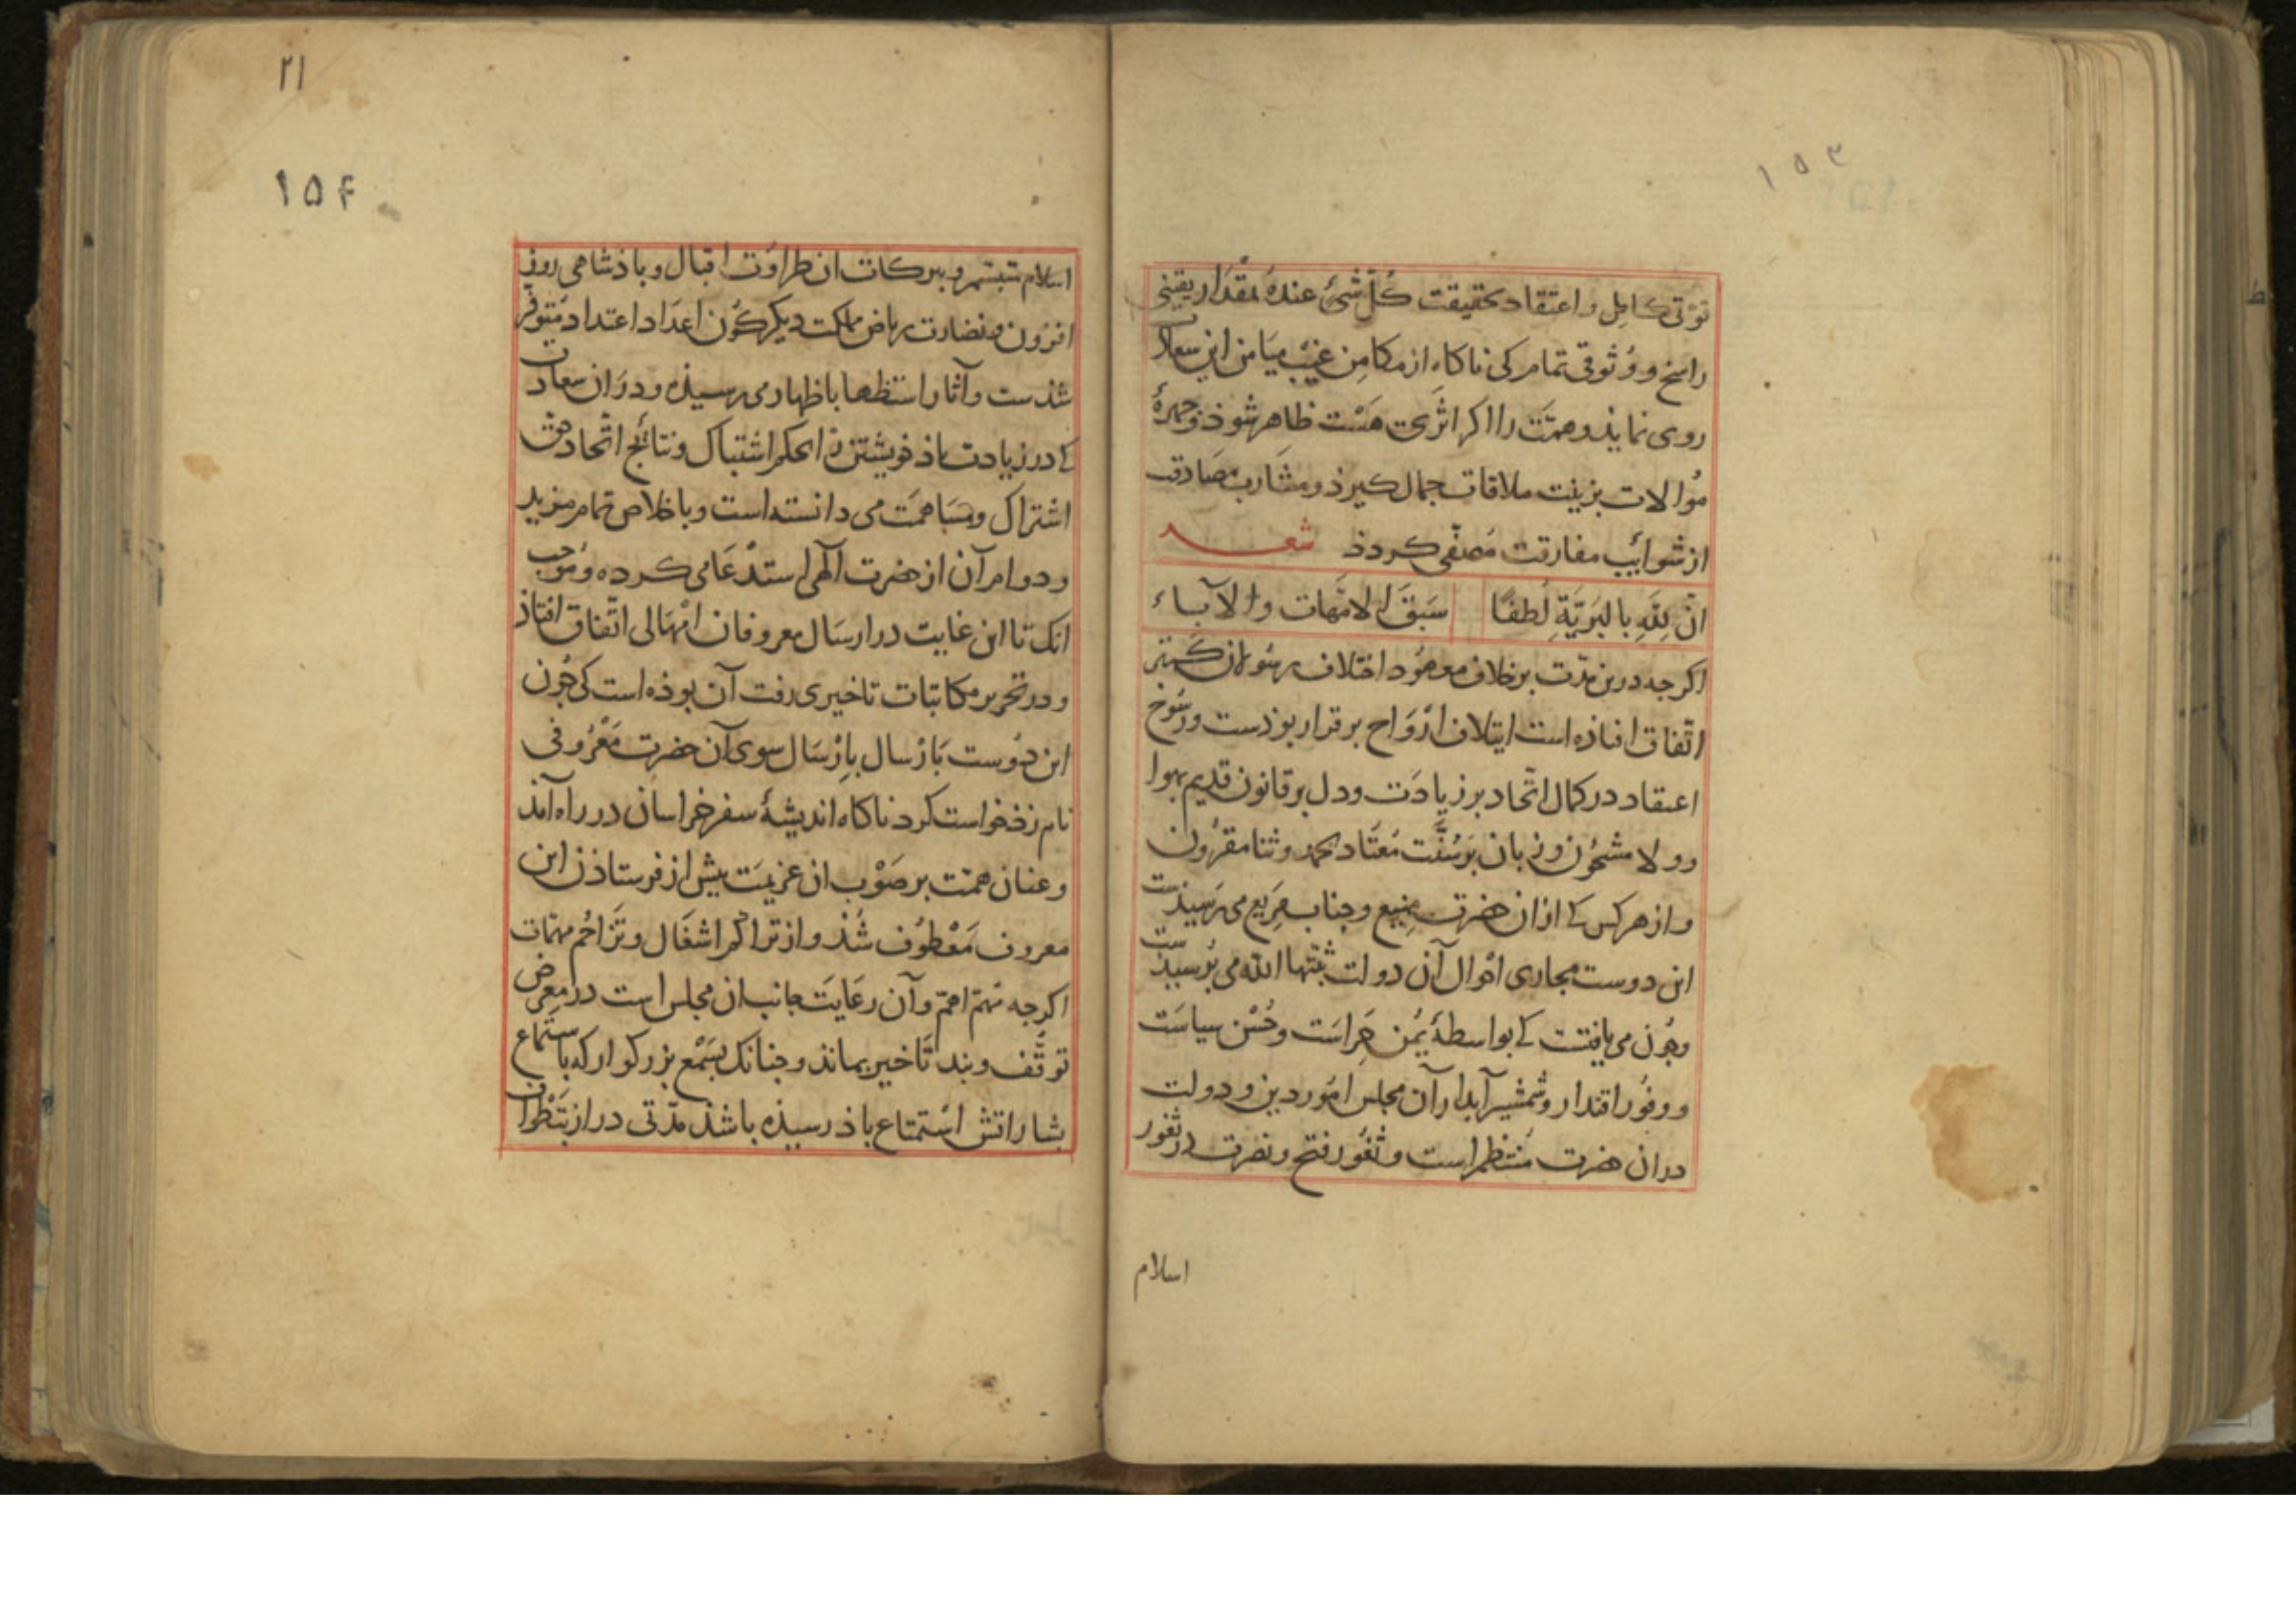 ۱۵۳
توقی کامل و اعتقاد بحقیقت کُلّ شیءٍ عندهُ بمقدار یقینی
راسخ و وُثوقی تمام کی ناکاه از مکامِن غیب میَامن این سعادت
روی نمایذ و همّت را اکر اثری هَسْت ظاهر شوذ و جهرهٔ
مُوالات بزینت ملاقات جمال کیرذ و مشارب مصَادقت
از شوایب مفارقت مُصفّی کردذ شعـــر
انّ لِلّهِ بالبَریَّةِ لُطفًا سَبَقَ الامّهات والآباء
اکرجه درین مدّت بر خلاف معهُود اختلاف رسُولان کمتر
اتّفاق افتاذه است ایتلاف ارْوَاح برقرار بوذست و رسُوخ
اعتقاد در کمال اتّحاد بر زیادَت و دل بر قانون قدیم بهوا
و ولا مشحُون و زبان بَر سُنَّت مُعتَاد بحمد و ثنا مقرُون
و از هرکس کی از ان حضرت منیع و جناب مَریع می رَسیذست
این دوست مجاری احْوال آن دولت ثبّتها الله می پُرسیذست
و جُون می یافتست کی بواسطهٔ یُمن حِراسَت و حُسْن سیاسَت
و وفُور اقتدار و شمْشیر آبدار آن مجلس امُور دین و دولت
دران حضرت مُنتظم است و ثغُور فتح و نصرت در ثغور
اسلام
۲۱
۱۵۴
اسلام متبسّم و ببرکات ان طراوت اقبال و باذشاهی روز
افزون و نضارت ریاض مملکت دیکرکُون اعدَاد اعتداد مُتوفّر
شذست و آثار استظهار باظهار می رسیذه و دران سعادت
کی در زیادت باذ خویشتن را بحکم اشتباک و نتایج اتّحاد حق
اشتراک و مسَاهمَت می دانسته است و باخلاص تمام مزید
و دوام آن از حضرت الٓهی استدْعَا می کرده و مُوجب
انک تا این غایت در ارسَال معروفان امْهَالی اتّفاق افتاذ
و در تحریر مکاتبات تاخیری رفت آن بوذه است کی جُون
این دوست بَازْسال بارْسَال سوی آن حضرت مَعْرُوفی
نامزذ خواست کرد ناکاه اندیشهٔ سفر خراسان در راه آمذ
و عنان همّت بر صَوْب ان عزیمَت بیش از فرستاذن این
معروف مَعْطوُف شُذ و از تراکُم اشغَال و تزَاحُم مهمّات
اکرجه مُهمّ اهمّ و آن رعَایَت جانب ان مجلس است در معرض
توقّف و بند تَاخیر بماند و جنانک بسَمْع بزرکوار که باستماع
بشاراتش استمتاع باذ رسیذه باشذ مدّتی دراز بتَطْواف